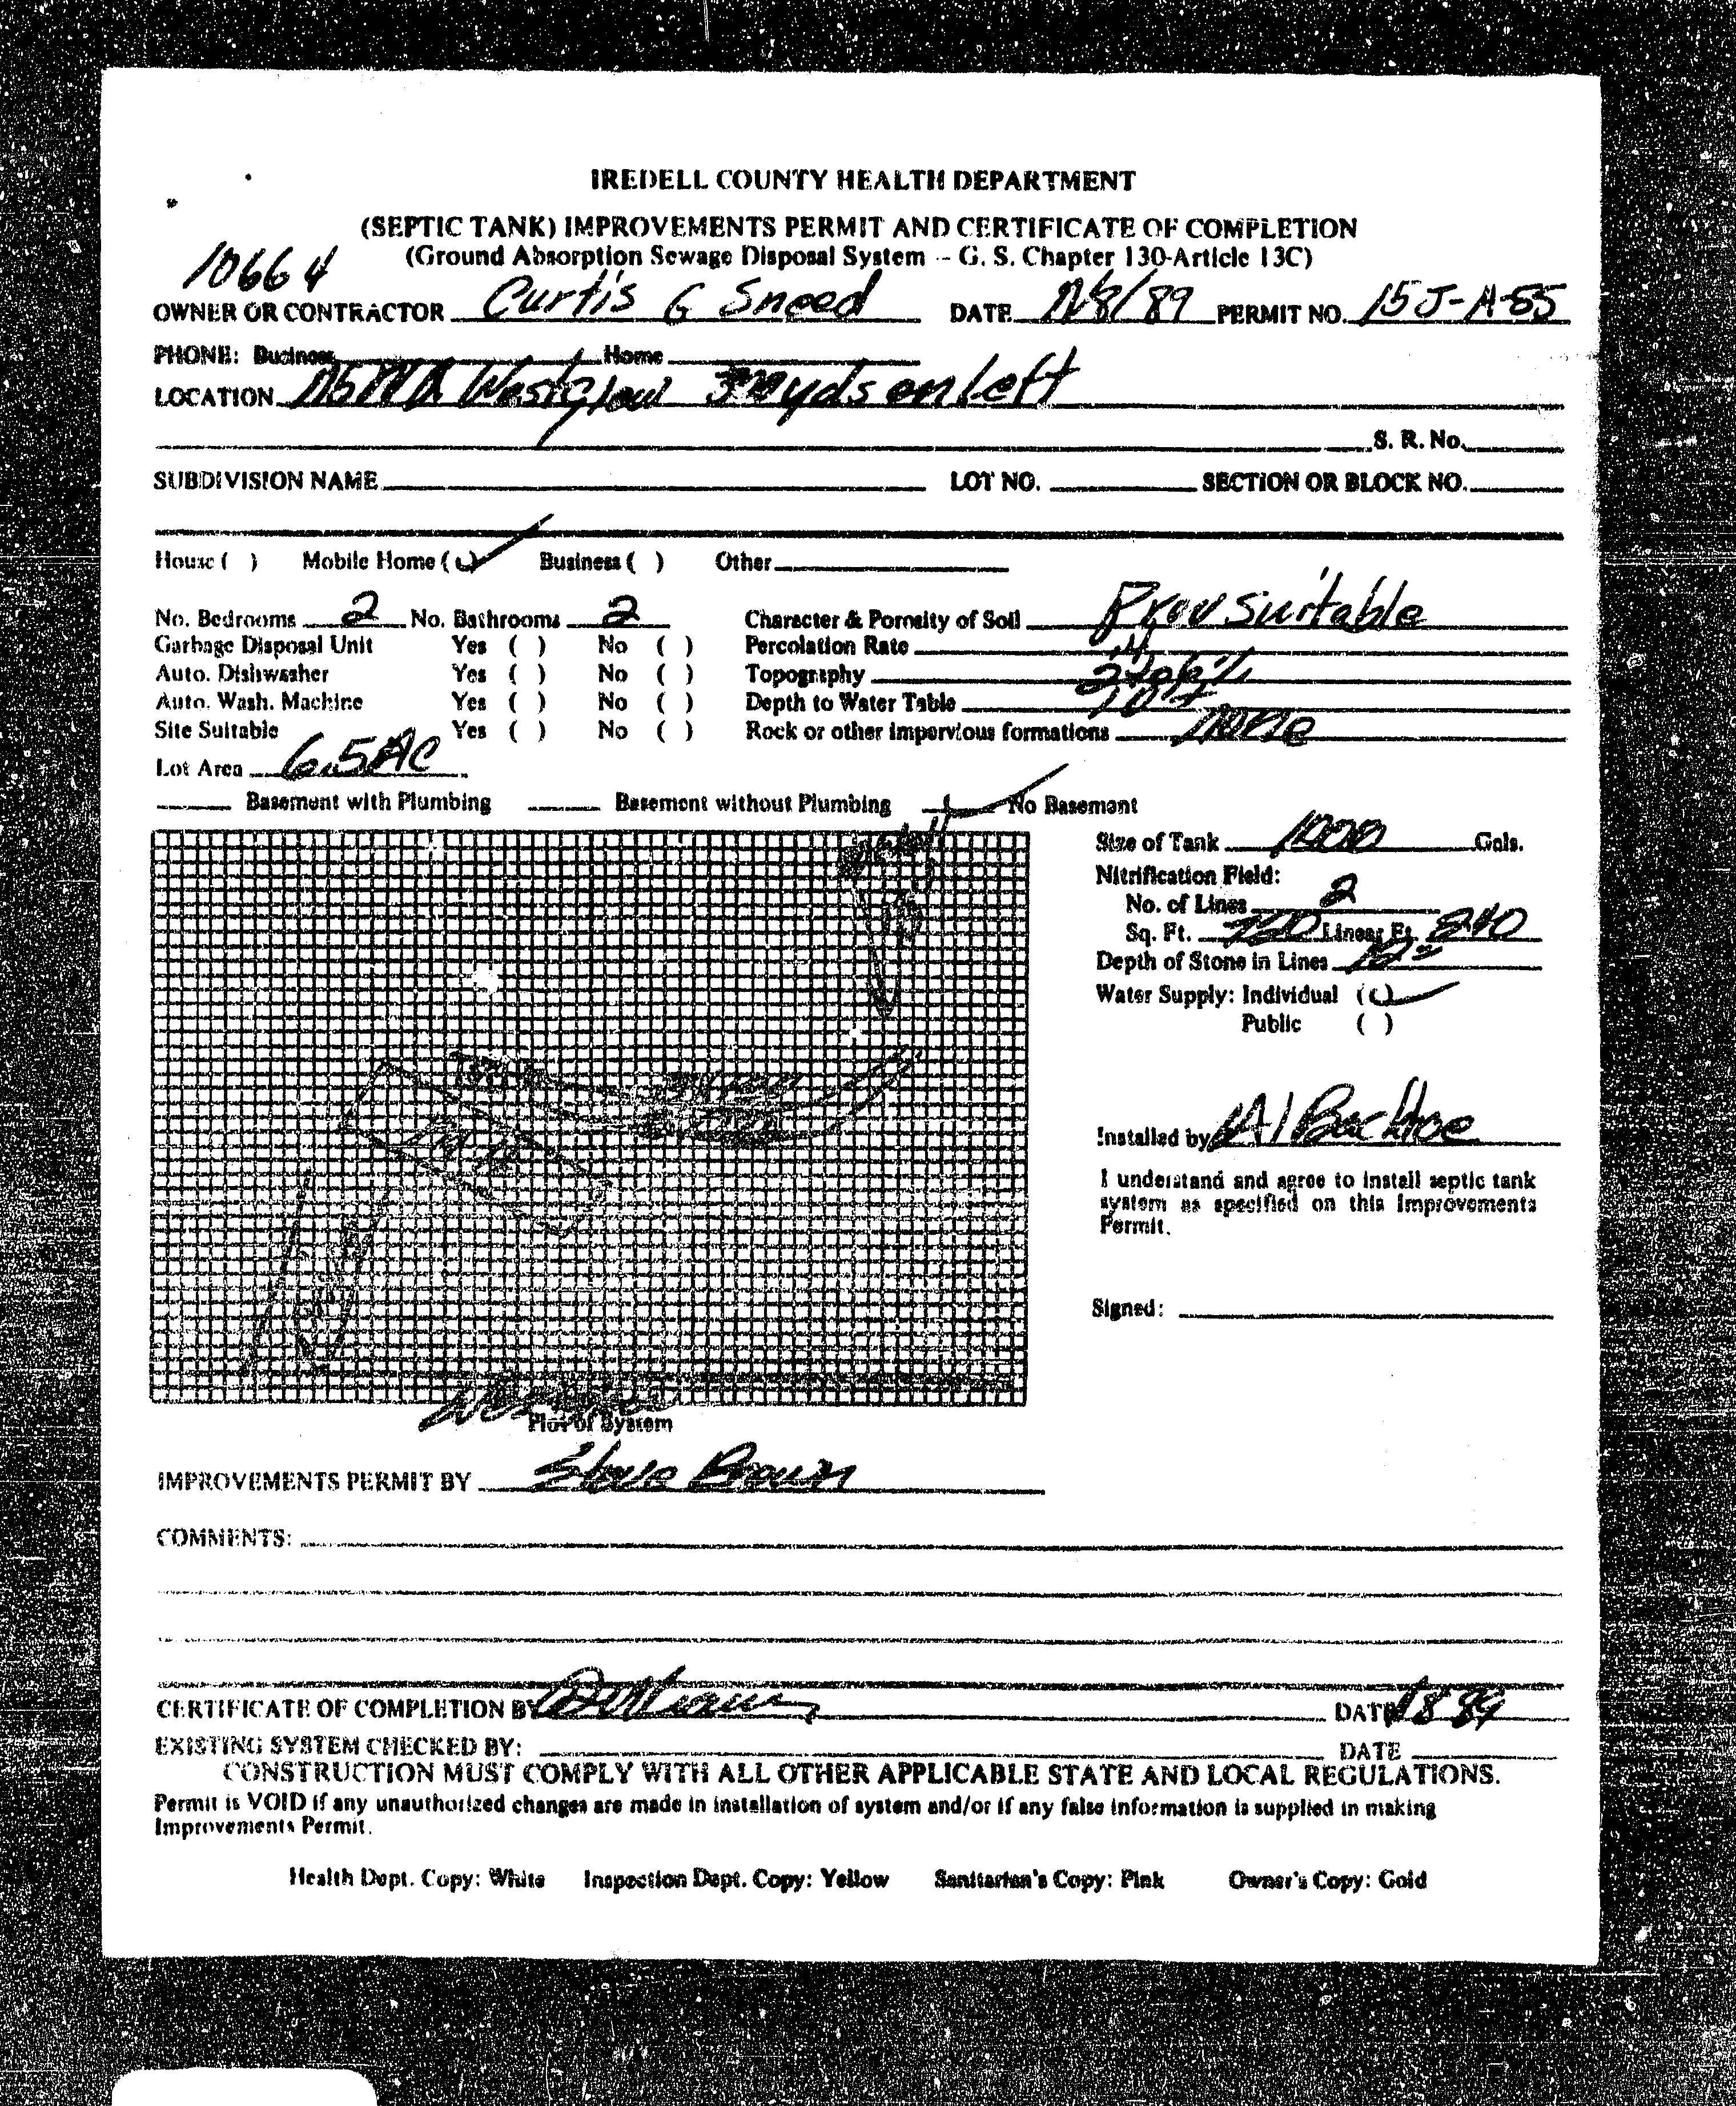 IREDELL COUNTY HEALTH DEPARTMENT
(SEPTIC TANK) IMPROVEMENTS PERMIT AND CERTIFICATE OF COMPLETION
(Ground Absorption Sewage Disposal System -- G. S. Chapter 130-Article 13C)
10664
OWNER OR CONTRACTOR Curtis G Sneed DATE PERMIT NO. 15J-A-55
PHONE: Business Home
LOCATION yds on left
S. R. No.
SUBDIVISION NAME LOT NO. SECTION OR BLOCK NO.
House ( ) Mobile Home (✓) Business ( ) Other
No. Bedrooms 2 No. Bathrooms 2 Character & Porosity of Soil Prov suitable
Garbage Disposal Unit Yes ( ) No ( ) Percolation Rate .4
Auto. Dishwasher Yes ( ) No ( ) Topography 2 to 6%
Auto. Wash. Machine Yes ( ) No ( ) Depth to Water Table
Site Suitable Yes ( ) No ( ) Rock or other impervious formations none
Lot Area 6.5 AC
Basement with Plumbing Basement without Plumbing ✓ No Basement
Size of Tank 1000 Gals.
Nitrification Field:
No. of Lines 2
Sq. Ft. 720 Linear Ft. 240
Depth of Stone in Lines 12"
Water Supply: Individual (✓)
Public ( )
Installed by A1 Backhoe
I understand and agree to install septic tank
system as specified on this Improvements
Permit.
Signed:
Plot of System
IMPROVEMENTS PERMIT BY Steve Brown
COMMENTS:
CERTIFICATE OF COMPLETION BY DATE
EXISTING SYSTEM CHECKED BY: DATE
CONSTRUCTION MUST COMPLY WITH ALL OTHER APPLICABLE STATE AND LOCAL REGULATIONS.
Permit is VOID if any unauthorized changes are made in installation of system and/or if any false information is supplied in making
Improvements Permit.
Health Dept. Copy: White Inspection Dept. Copy: Yellow Sanitarian's Copy: Pink Owner's Copy: Gold